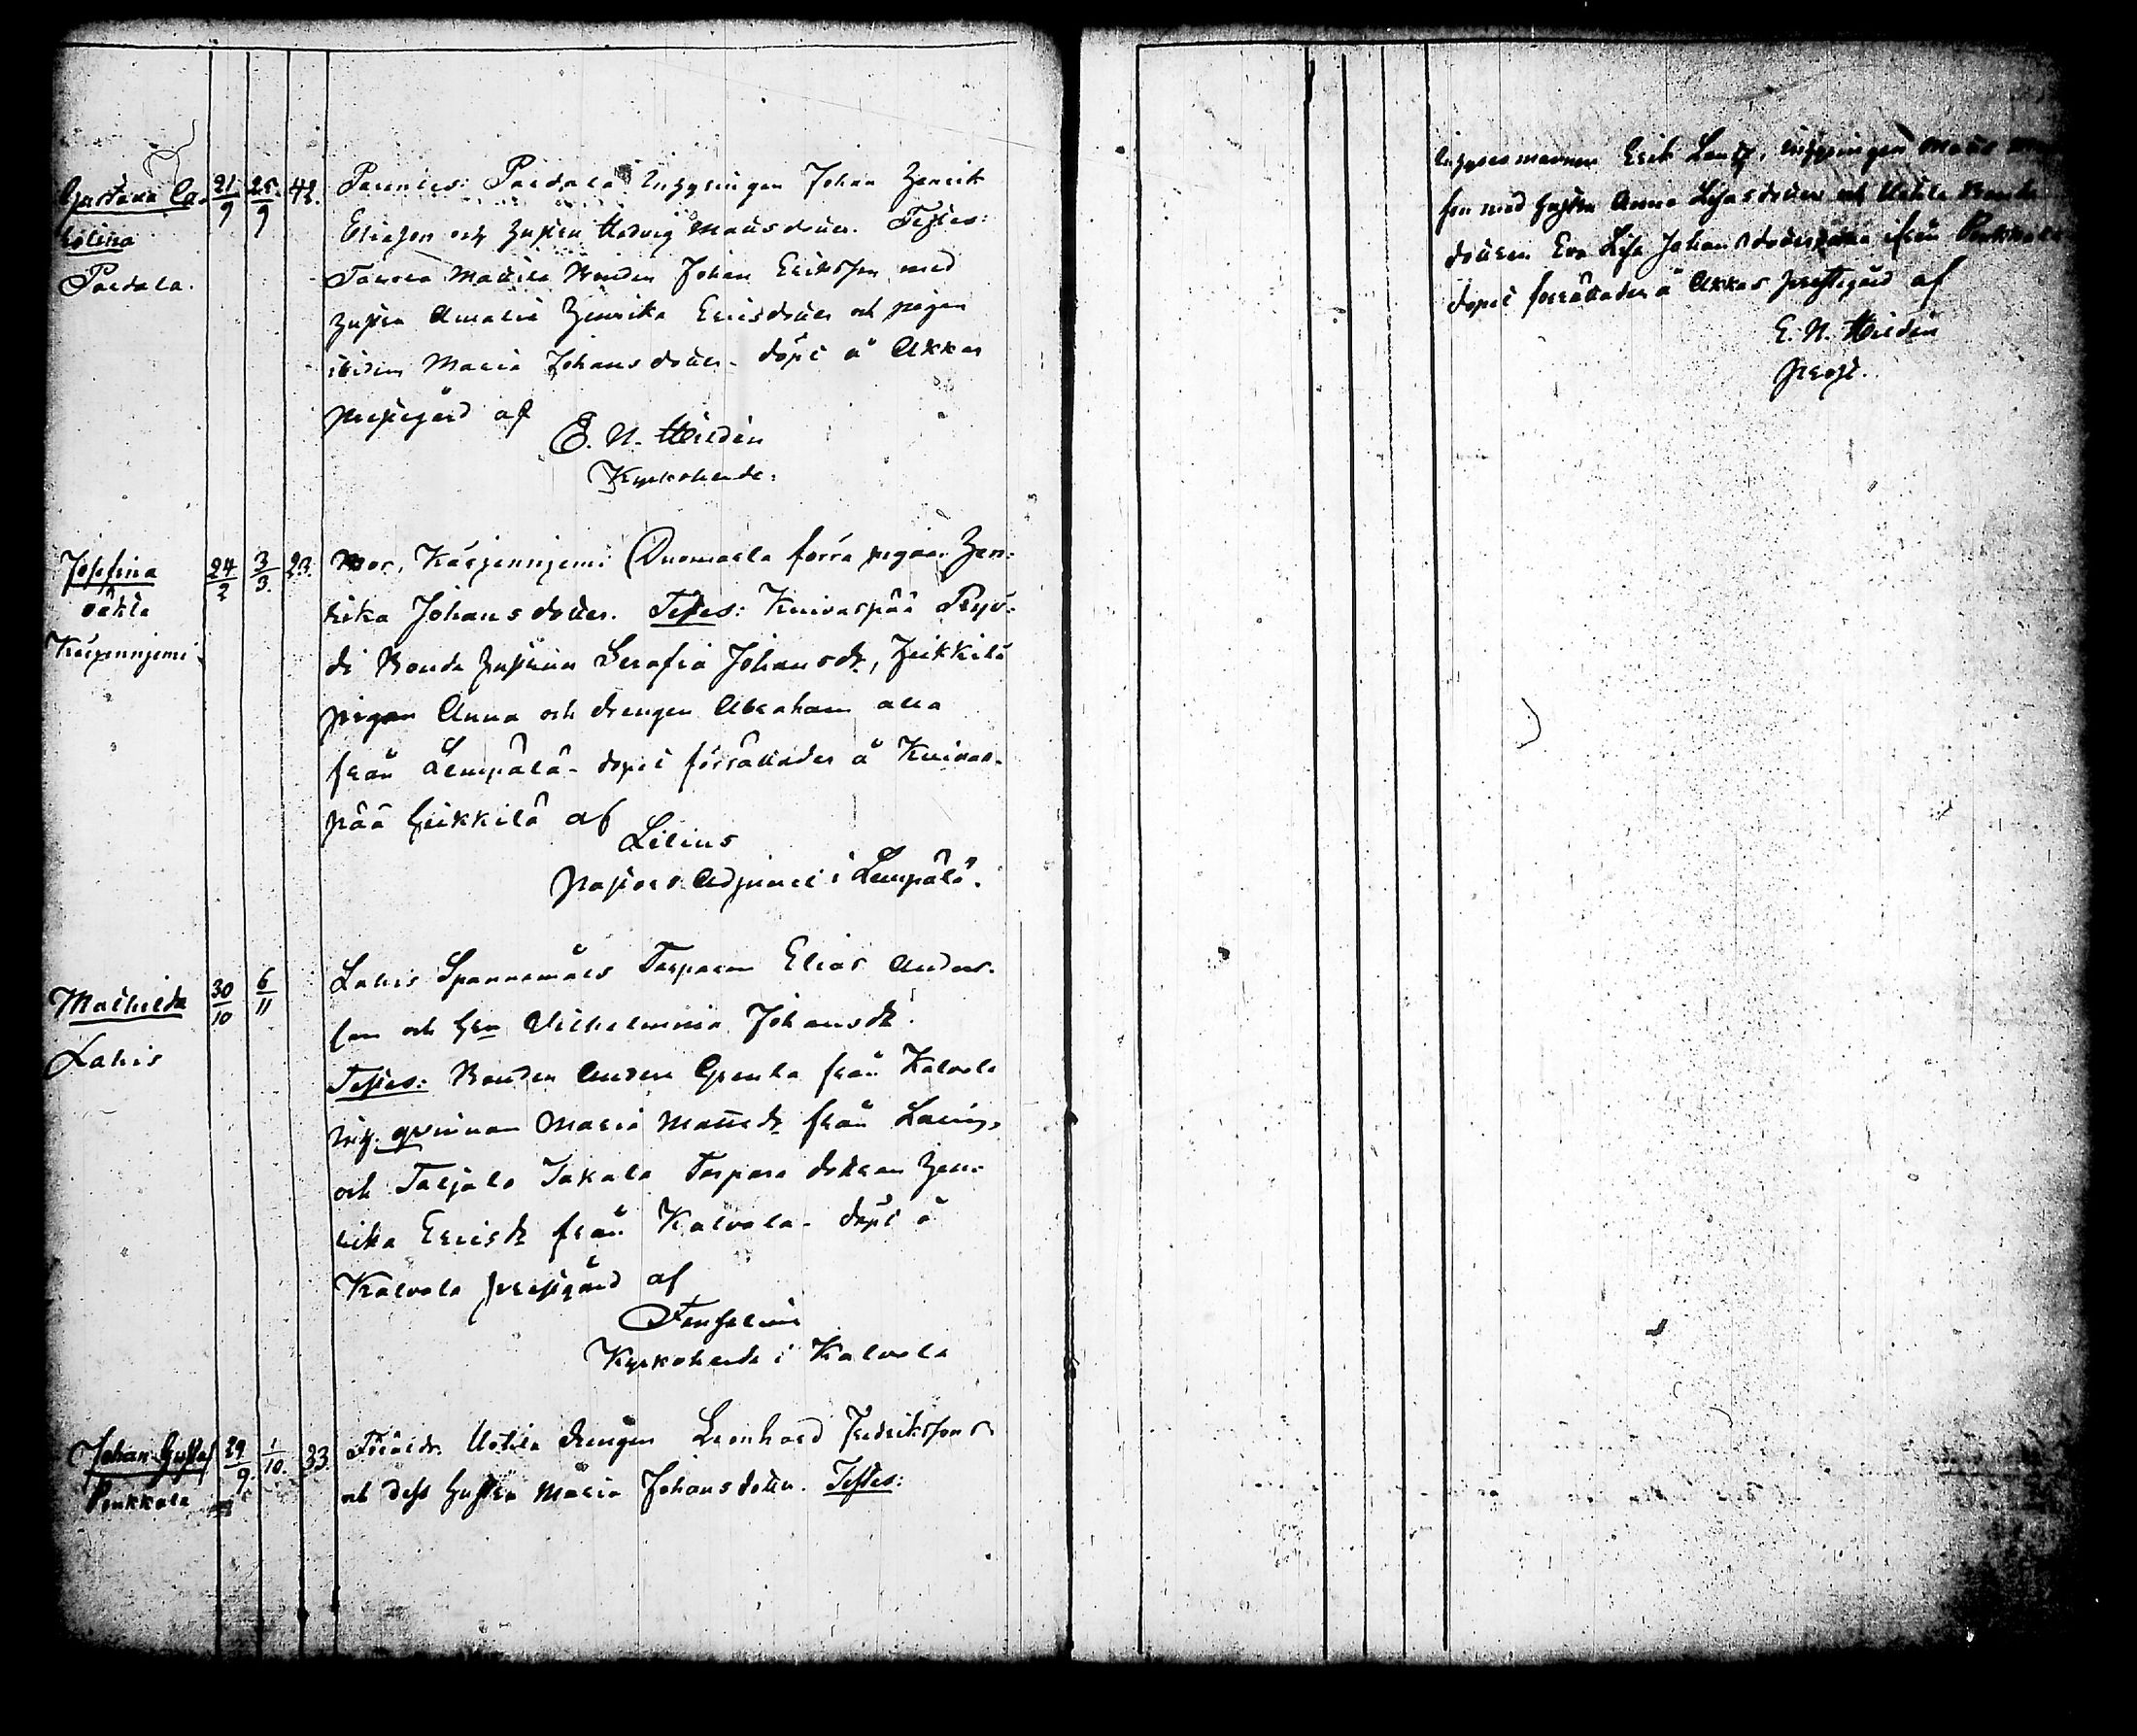 Gustava Ca-
rolina
Pardala.
21/9 25/9 42.
Parentes: Pardala Inhysingen Johan Henrik
Eliason och hustru Hedvig Mattsdotter. Testes:
Mattila Bonden Johan Eriksson med
hustru Amalia Henrika Ericsdotter och pigan
ibidem Maria Johansdotter. döpt å Akkas
prestgård af
E. N. Hildén
Kyrkoherde.
Josefina
oäkta
Kärjenniemi
24/2 3/3. 23.
Mor, Kärjenniemi Tuomaala förra pigan Hen-
rika Johansdotter. Testes: Kuivaspää
Bonde hustrun Serafia Johansdr, Heikkilä
pigan Anna och drengen Abraham alla
från Lempälä. dopet förrättades å Kuivas-
pää Heikkilä af
Lilius
Pastors Adjunct i Lempälä.
Mathilda
Lahis
30/10 6/11
Lahis Torparen Elias Anders-
son och hru Vilhelmina Johansdr.
Testes: Bonden Anders från Kalvola
inh. qvinnan Maria Mattsdr från
och Taljala Jakala Torpare dottran Hen-
rika Ericsdr från Kalvola. döpt å
Kalvola prestgård af
Kyrkoherde i Kalvola
Johan Gustaf
Penkkala
29/9 1/10. 33.
Föräldr. Uotila drengen Leonhard Fredriksson
och dess hustru Maria Johansdotter. Testes:
Inhysesmannen Erik inhysingen Matts
son med hustru Anna Lisasdotter och Uotila Bonde
dottren Eva Lisa Johansdotter ifrån Penkkala
dopet forrättades å Akkas prestegård af
E. N. Hildén
prost.